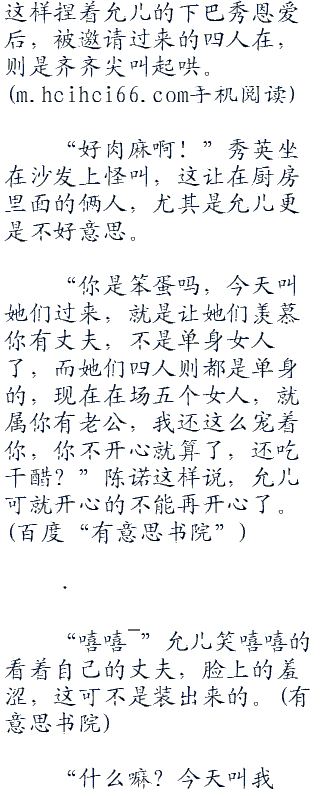 这样捏着允儿的下巴秀恩爱
后，被邀请过来的四人在，
则是齐齐尖叫起哄。
(m.hcihci66.com手机阅读)
“好肉麻啊！”秀英坐
在沙发上怪叫，这让在厨房
里面的俩人，尤其是允儿更
是不好意思。
“你是笨蛋吗，今天叫
她们过来，就是让她们羡慕
你有丈夫，不是单身女人
了，而她们四人则都是单身
的，现在在场五个女人，就
属你有老公，我还这么宠着
你，你不开心就算了，还吃
干醋？”陈诺这样说，允儿
可就开心的不能再开心了。
(百度“有意思书院”)
.
“嘻嘻‾”允儿笑嘻嘻的
看着自己的丈夫，脸上的羞
涩，这可不是装出来的。(有
意思书院)
“什么嘛？今天叫我